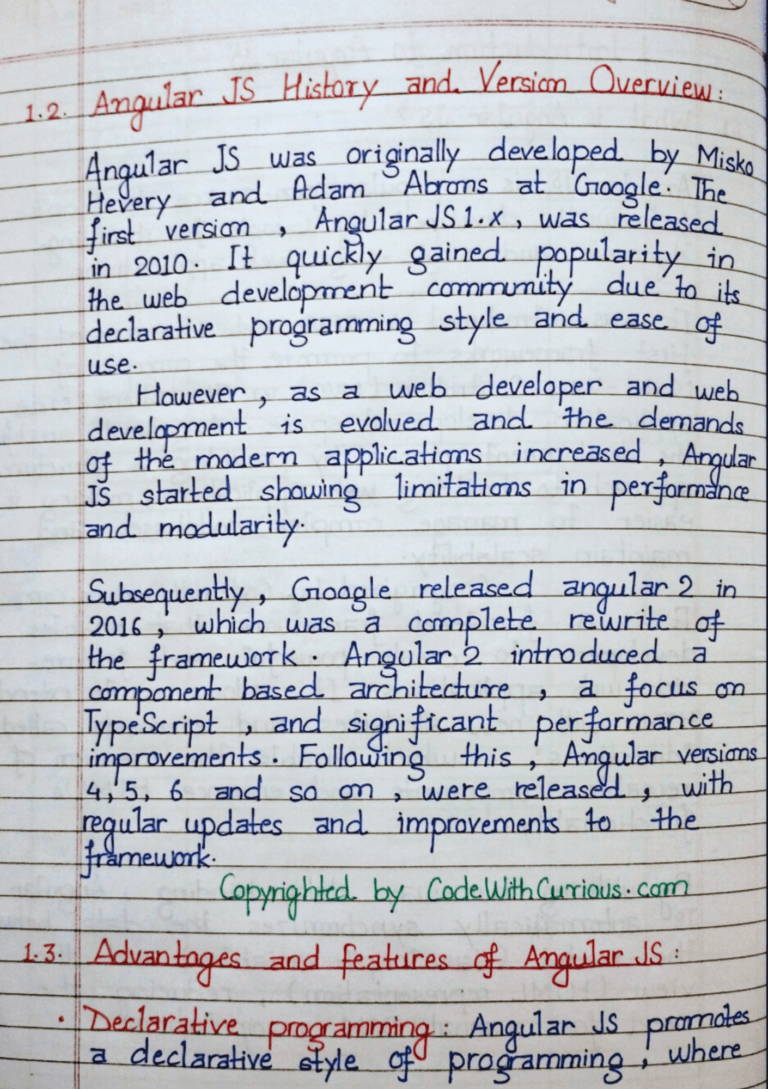 1.2. Angular JS History and Version Overview:
Angular JS was originally developed by Misko
Hevery and Adam Abrons at Google. The
first version, Angular JS 1.x, was released
in 2010. It quickly gained popularity in
the web development community due to its
declarative programming style and ease of
use.
However, as a web developer and web
development is evolved and the demands
of the modern applications increased, Angular
JS started showing limitations in performance
and modularity.
Subsequently, Google released angular 2 in
2016, which was a complete rewrite of
the framework. Angular 2 introduced a
component based architecture, a focus on
TypeScript, and significant performance
improvements. Following this, Angular versions
4, 5, 6 and so on, were released, with
regular updates and improvements to the
framework.
Copyrighted by CodeWithCurious.com
1.3. Advantages and features of Angular JS:
• Declarative programming: Angular JS promotes
a declarative style of programming, where